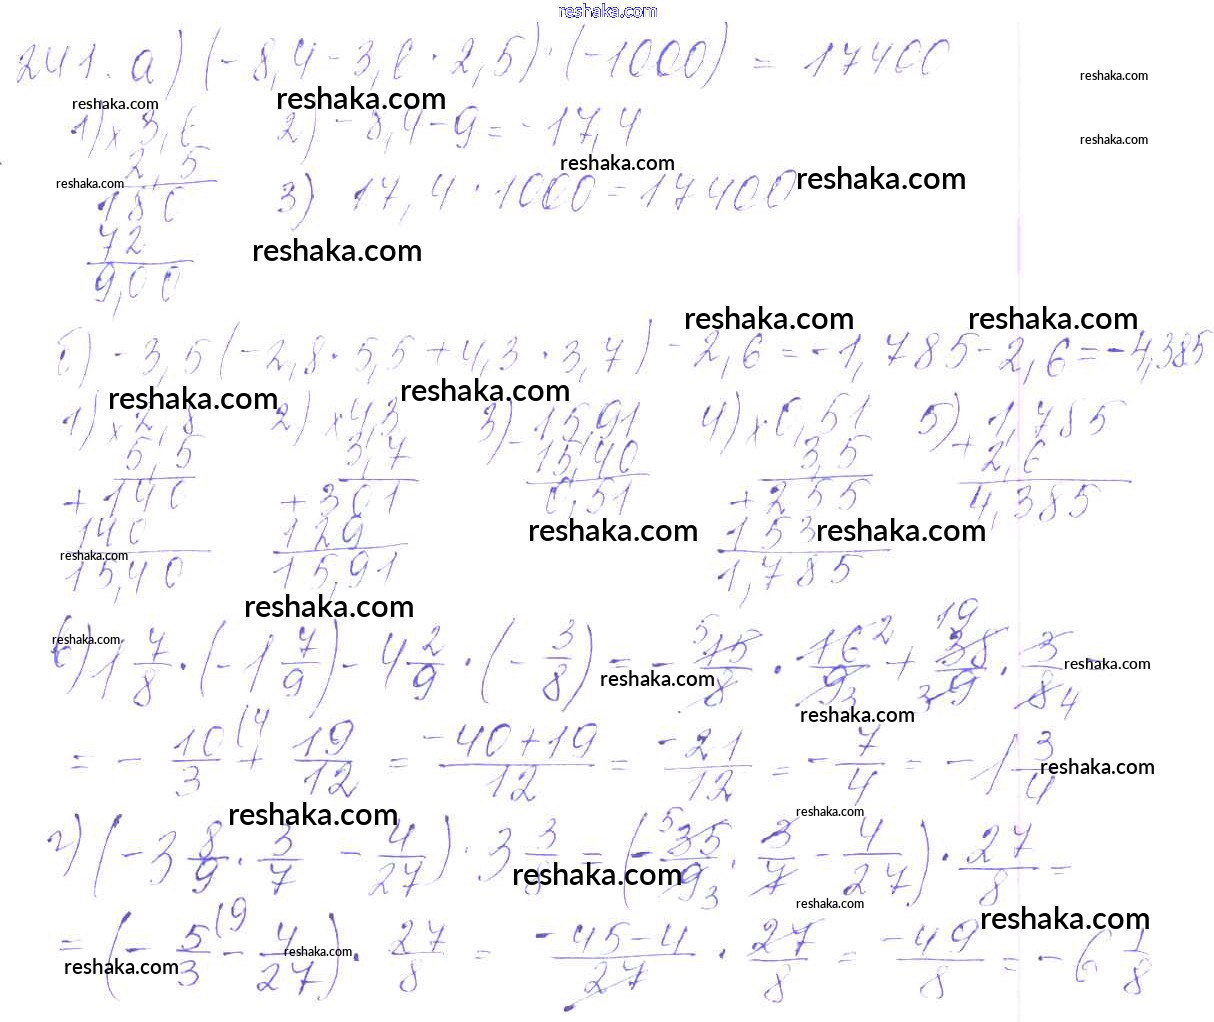 reshaka.com
241. а) (-8,4 - 3,6 · 2,5) · (-1000) = 17400
reshaka.com
reshaka.com reshaka.com
1) × 3,6 2) -8,4 - 9 = -17,4
reshaka.com
reshaka.com
2,5
reshaka.com
180 3) 17,4 · 1000 = 17400
reshaka.com
72
reshaka.com
9,00
reshaka.com reshaka.com
б) -3,5 (-2,8 · 5,5 + 4,3 · 3,7) - 2,6 = -1,785 - 2,6 = -4,385
reshaka.com reshaka.com
1) × 2,8 2) × 4,3 3) - 15,91 4) × 0,51 5) + 1,785
5,5 3,7 15,40 3,5 2,6
+ 140 + 301 0,51 + 255 4,385
140 129 153
reshaka.com reshaka.com
reshaka.com
15,40 15,91 1,785
reshaka.com
reshaka.com
в) 1 7/8 · (-1 7/9) - 4 2/9 · (- 3/8) = - 15/8 · 16/9 + 38/9 · 3/8 =
reshaka.com reshaka.com
reshaka.com
= - 10/3 + 19/12 = -40+19/12 = -21/12 = - 7/4 = -1 3/4
reshaka.com
reshaka.com reshaka.com
г) (-3 8/9 · 3/7 - 4/27) · 3 3/8 = (- 35/9 · 3/7 - 4/27) · 27/8 =
reshaka.com
reshaka.com
reshaka.com
= (- 5/3 - 4/27) · 27/8 = -45-4/27 · 27/8 = -49/8 = -6 1/8
reshaka.com reshaka.com